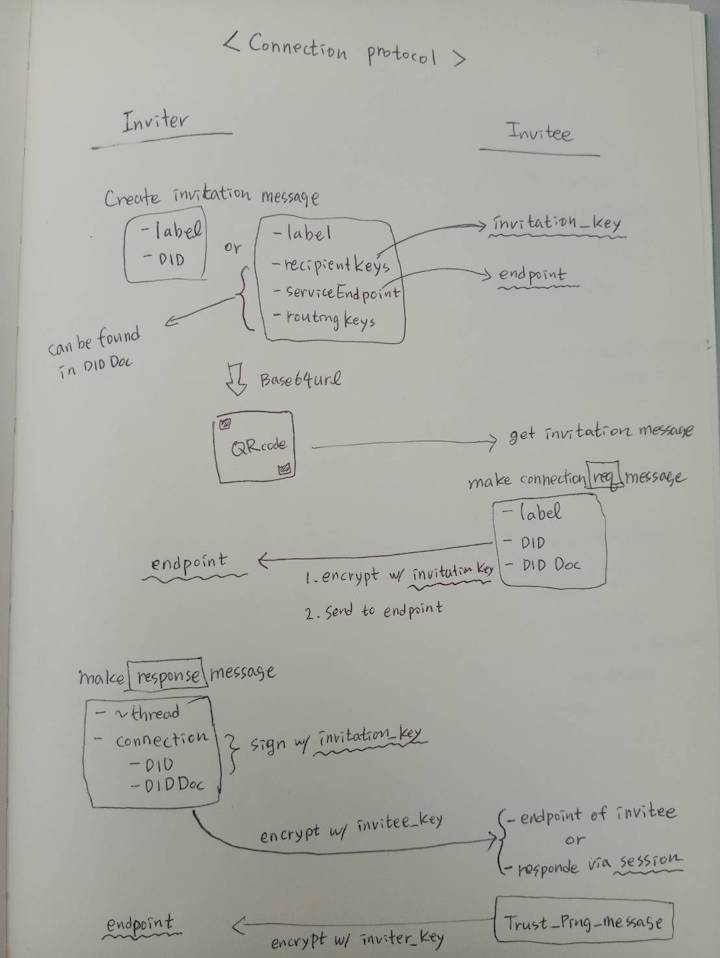 < Connection protocol >
Inviter
Invitee
Create invitation message
- label
- DID
or
- label
- recipientKeys
- serviceEndpoint
- routingKeys
invitation_key
endpoint
can be found
in DID Doc
Base64url
QRcode
get invitation message
make connection req message
- label
- DID
- DID Doc
endpoint
1. encrypt w/ invitation key
2. send to endpoint
make response message
- ~thread
- connection
- DID
- DID Doc
sign w/ invitation_key
encrypt w/ invitee_key
- endpoint of invitee
or
- responde via session
endpoint
encrypt w/ inviter_key
Trust_Ping_message